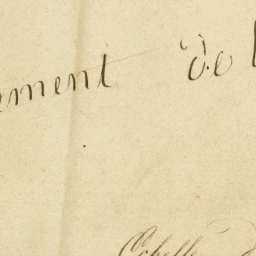 ement de l
Echelle d